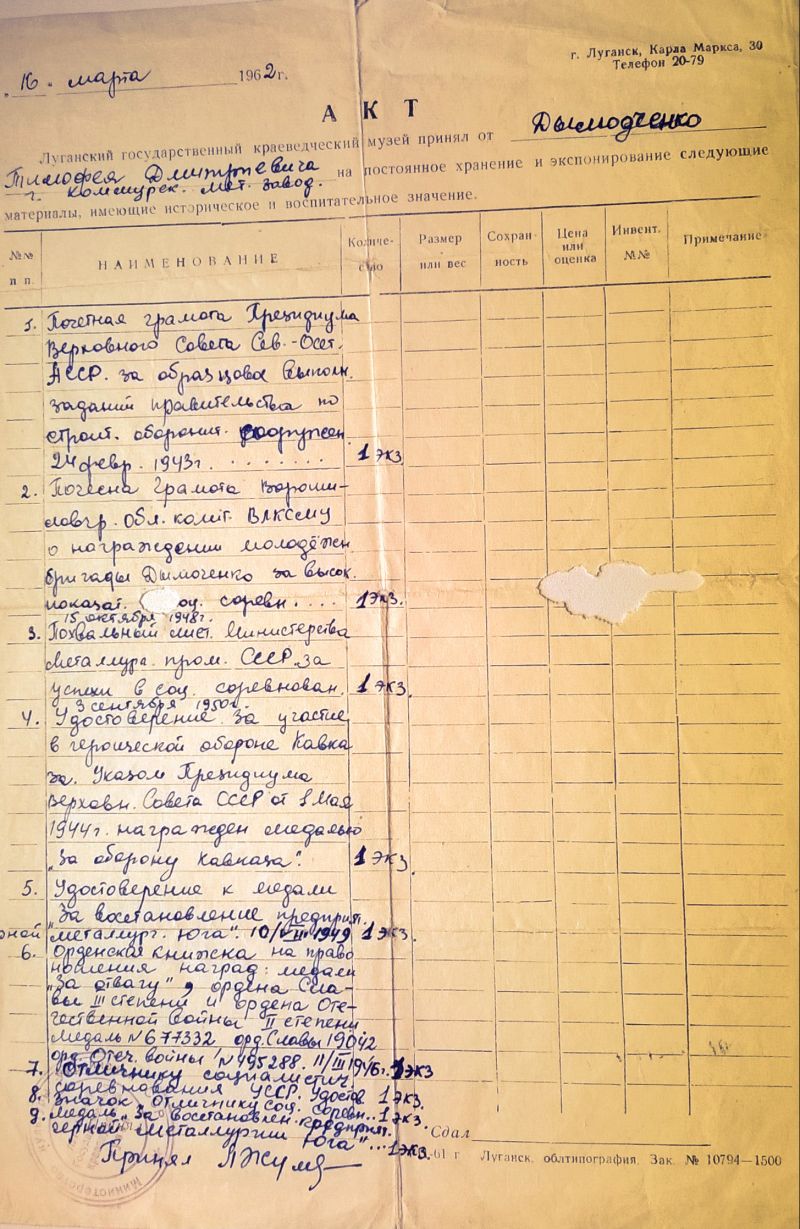 г. Луганск, Карла Маркса, 30
Телефон 20-79
„16" марта 1962 г.
АКТ
Луганский государственный краеведческий музей принял от Дымодченко
Тимофея Дмитриевича на постоянное хранение и экспонирование следующие
г. Коммунрск. мет. завод.
материалы, имеющие историческое и воспитательное значение.
№№ п п. НАИМЕНОВАНИЕ Количество Размер или вес Сохранность Цена или оценка Инвент. №№ Примечание
1. Почетная грамота Президиума
Верховного Совета Сев.-Осет.
АССР. за образцовое выполн.
заданий правительства по
строит. оборонит. сооружен.
24 февр. 1943 г. . . . . . . . . 1 экз.
2. Почесна Грамота Вороши-
ловгр. Обл. комит. ВЛКСМу
о награждении молодёжн.
бригады Дымоченко за высок.
показат. соц. соревн. . . . 1 экз.
15 октября 1948 г.
3. Похвальный лист. Министерства
Металлург. пром. СССР. за
успехи в соц. соревнован. 1 экз.
3 сентября 1950 г.
4. Удостоверение за участие
в героической обороне Кавка
за. Указом Президиума
Верховн. Совета СССР от 1 Мая
1944 г. награжден медалью
„За оборону Кавказа". 1 экз.
5. Удостоверение к медали
„За восстановление предприят.
рной металлург. юга". 10/VII 1949 1 экз.
6. Орденская книжка на право
ношения наград: медали
„За отвагу", ордена Сла-
вы III степени и ордена Оте-
чественной войны II степени
Медаль № 677332 орд. Славы 19042
орд. Отеч. войны № 495288. 11/III 1946 г. 1 экз
7. Отличнику социалистич.
соревнования УССР. Удостов 1 экз.
8. Значок „Отличнику соц. соревн.. 1 экз.
9. Медаль „За восстановлен. предприят.
черной металлургии Юга"... 1 экз.
Сдал
Принял
-61 г Луганск, облтипография. Зак. № 10794—1500